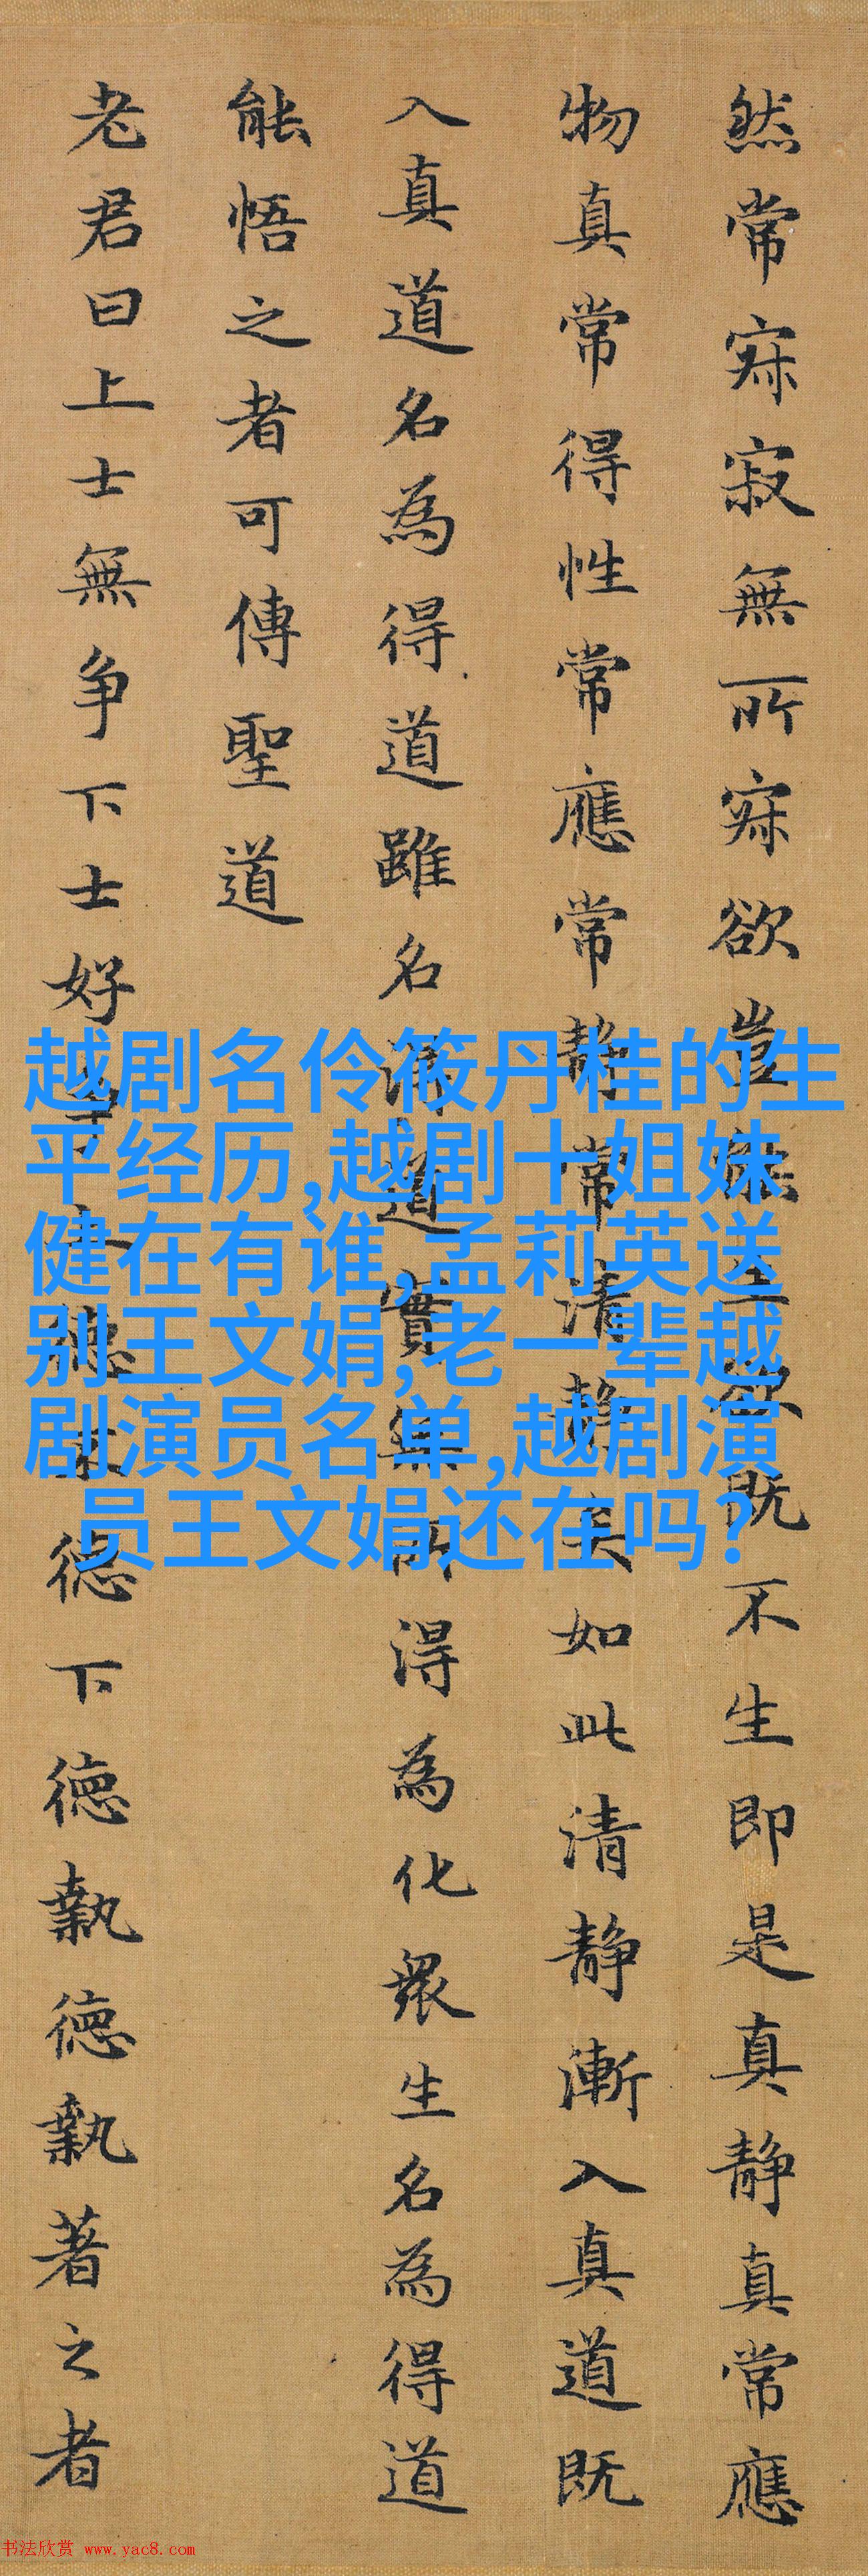 然常寂寂無所寂欲豈能生欲既不生即是真静真常應
物真常得性常應常静常清静矣如此清静漸入真道既
入真道名為得道雖名得道實無所得為化衆生名為得道
能悟之者可傳聖道
老君曰上士無争下士好争上德不德下德執德執著之者
越剧名伶筱丹桂的生
平经历,越剧十姐妹
健在有谁,孟莉英送
别王文娟,老一辈越
剧演员名单,越剧演
员王文娟还在吗?
书法欣赏 www.yac8.com